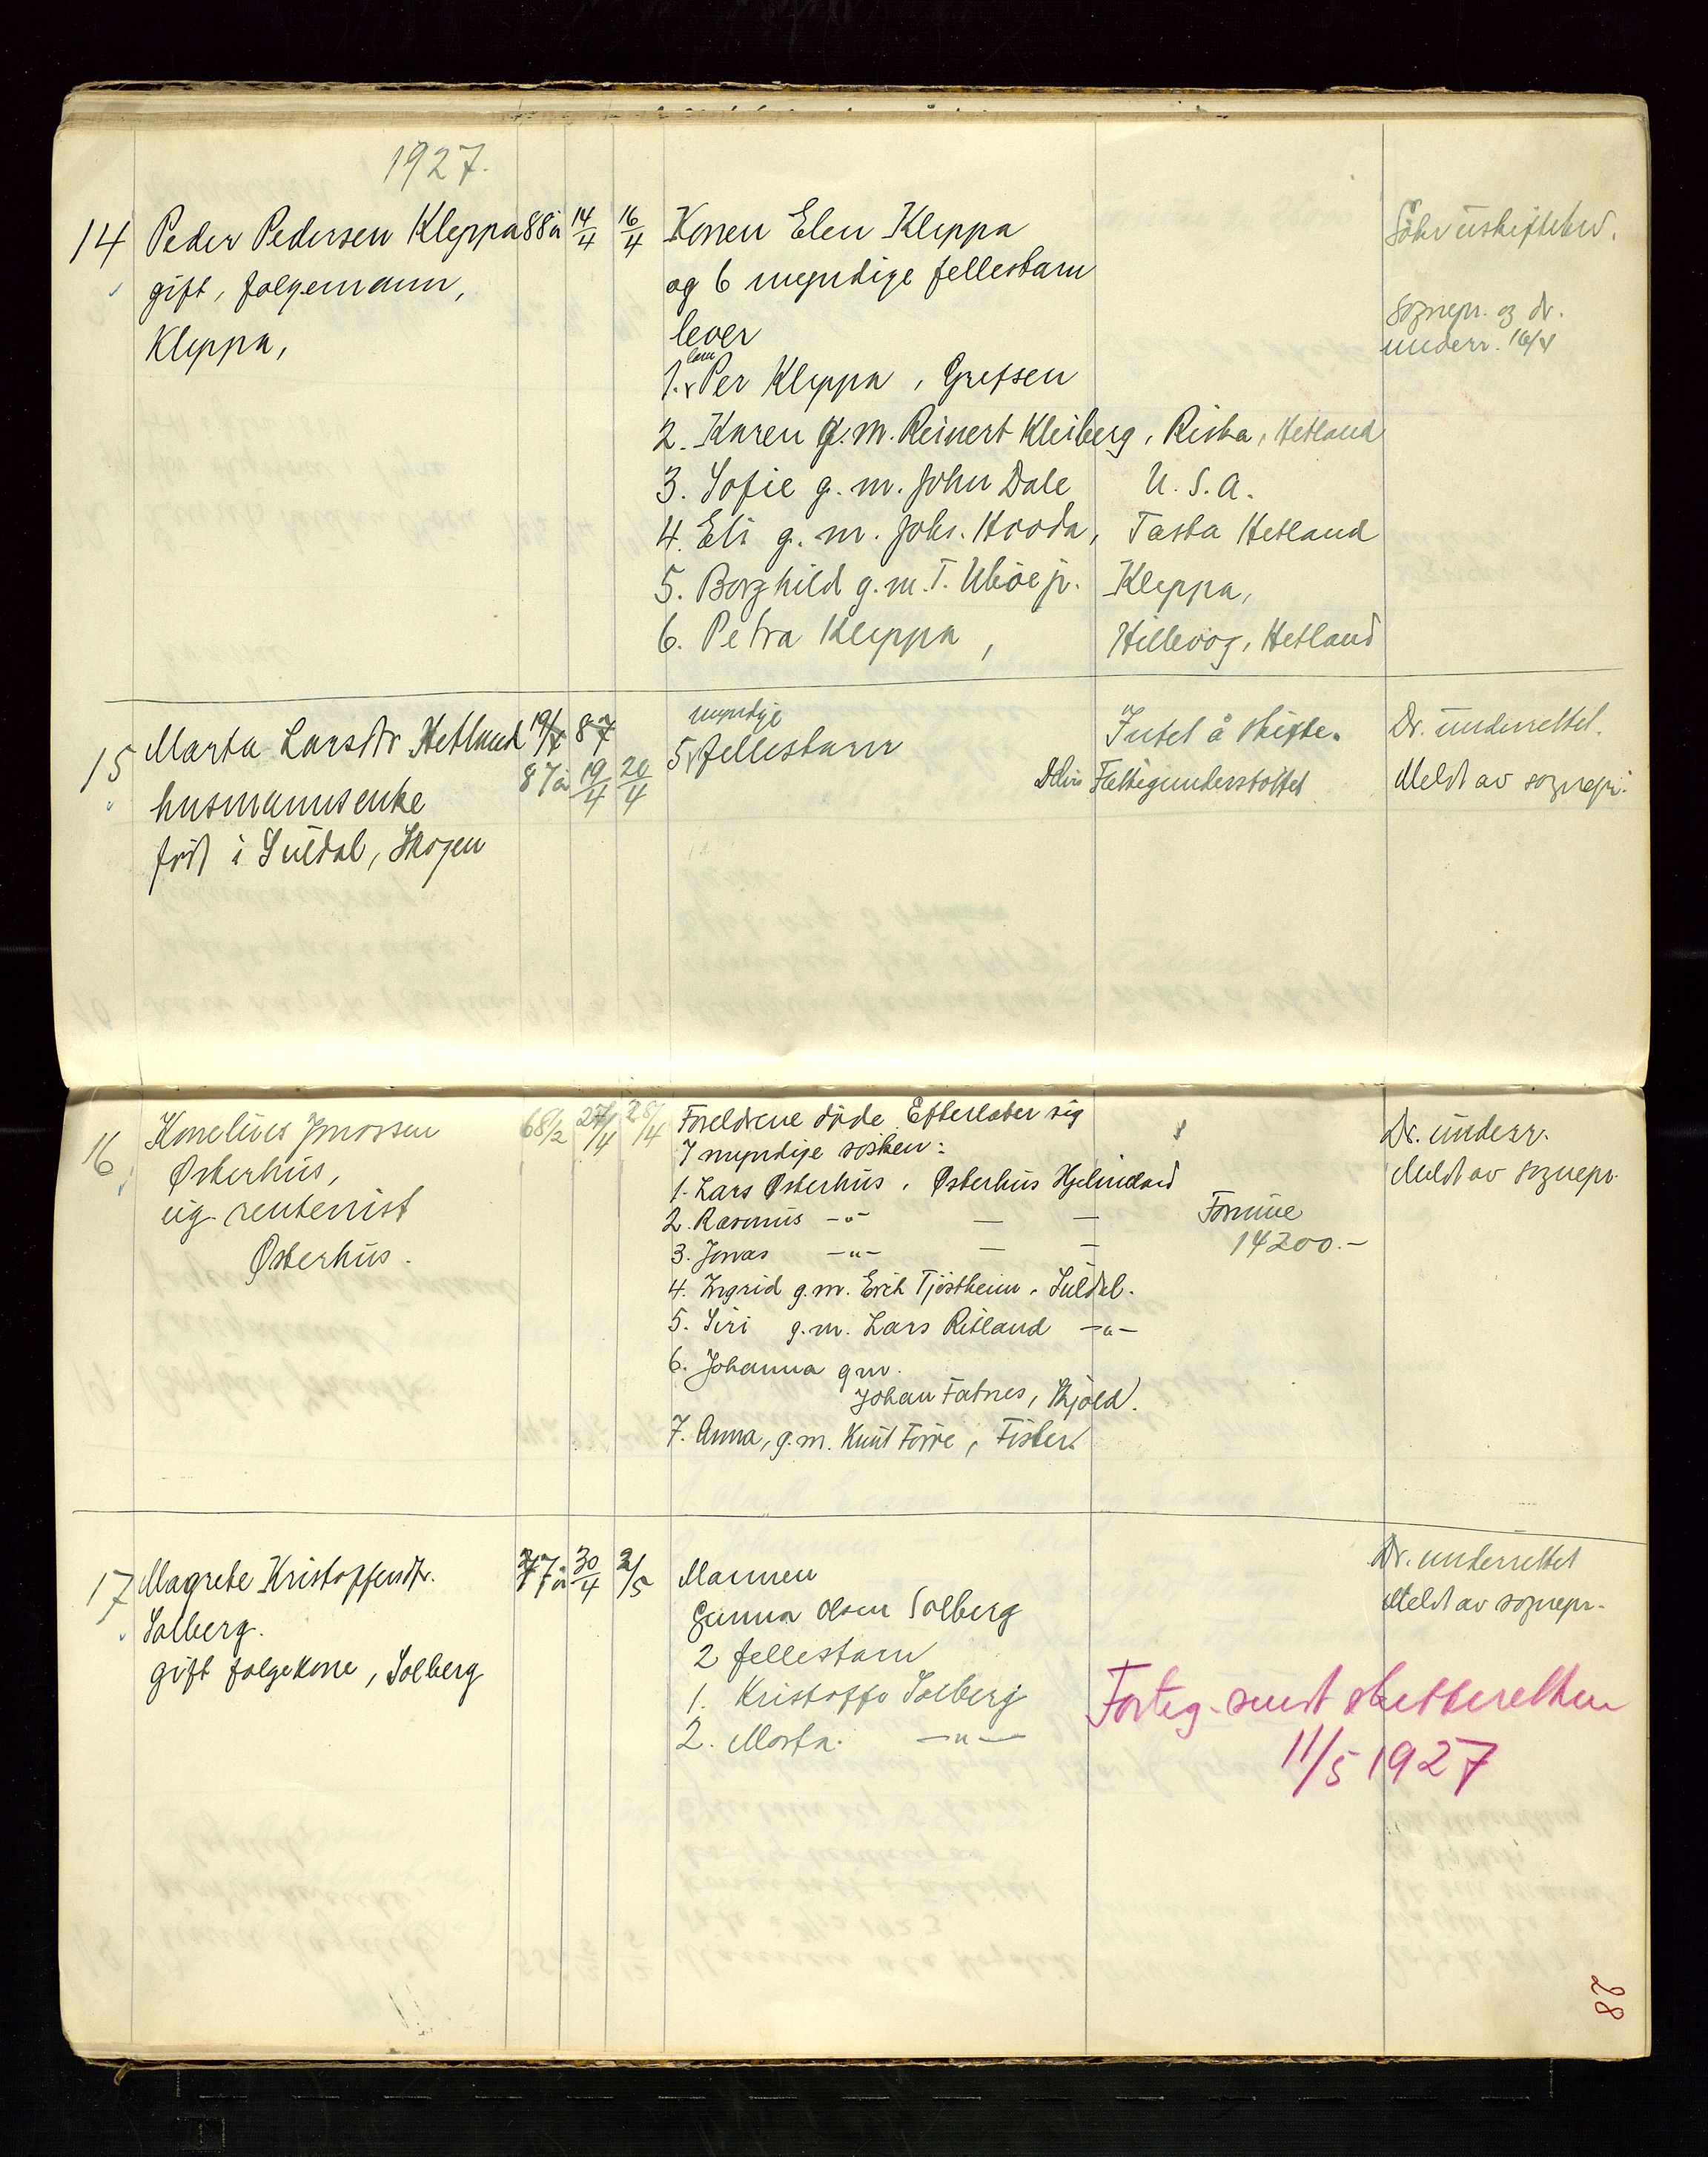 1927.
14 Peder Pedersen Kleppa 88 år 14/4 16/4 Konen Elen Kleppa
gift, folgemann, og 6 myndige fellesbarn
Kleppa, lever
Søker uskiftebev.
sognepr. og dr.
underr. 16/4
1. Per Kleppa, Grefsen
2. Karen g.m. Reinert Kleiberg, Riska, Hetland
3. Sofie g.m. John Dale U.S.A.
4. Eli g.m. Johs. Hooda, Tasta Hetland
5. Borghild g.m. T. Ubøe jr. Kleppa,
6. Petra Kleppa, Hillevog, Hetland
15 Marta Larsdtr Hetland 87 år 19/4 20/4 5 myndige fellesbarn Intet å skifte. Dr. underrettet.
husmannsenke Fattigunderstøttet Meldt av sognepr.
født i Suldal, Skogen
16 Konelius Jonassen 68 1/2 27/4 28/4 Foreldrene døde. Efterlater sig Dr. underr.
Østerhus, 7 myndige søsken: Meldt av sognepr.
ug. rentenist 1. Lars Østerhus, Østerhus Hjelmeland
Østerhus. 2. Rasmus -"- — — Formue
3. Jonas -"- — — 14200.-
4. Ingrid g.m. Erik Tjøstheim, Suldal.
5. Siri g.m. Lars Ritland -"-
6. Johanna gm.
Johan Fatnes, Skjold.
7. Anna, g.m. Knut Førre, Fister.
17 Magrete Kristoffersdtr. 77 år 30/4 2/5 Mannen Dr. underrettet
Solberg. Gunna Olsen Solberg Meldt av sognepr.
gift folgekone, Solberg 2 fellesbarn
1. Kristoffer Solberg
2. Marta. -"-
Forteg. sendt skifteretten
11/5 1927
28